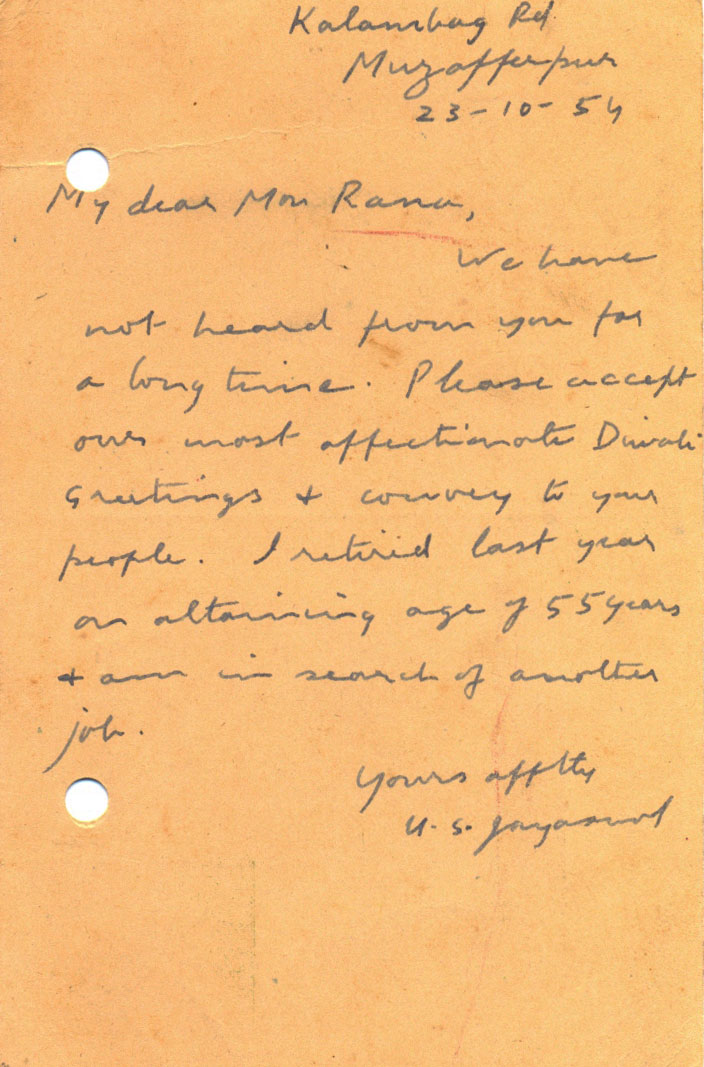 Kalambag Rd
Muzafferpur
23-10-54
My dear Mon Rana,
We have
not heard from you for
a long time. Please accept
our most affectionate Diwali
Greetings & convey to your
people. I retired last year
on attaining age of 55 years
& am in search of another
job.
Yours affltly
U. S. Jayaswal